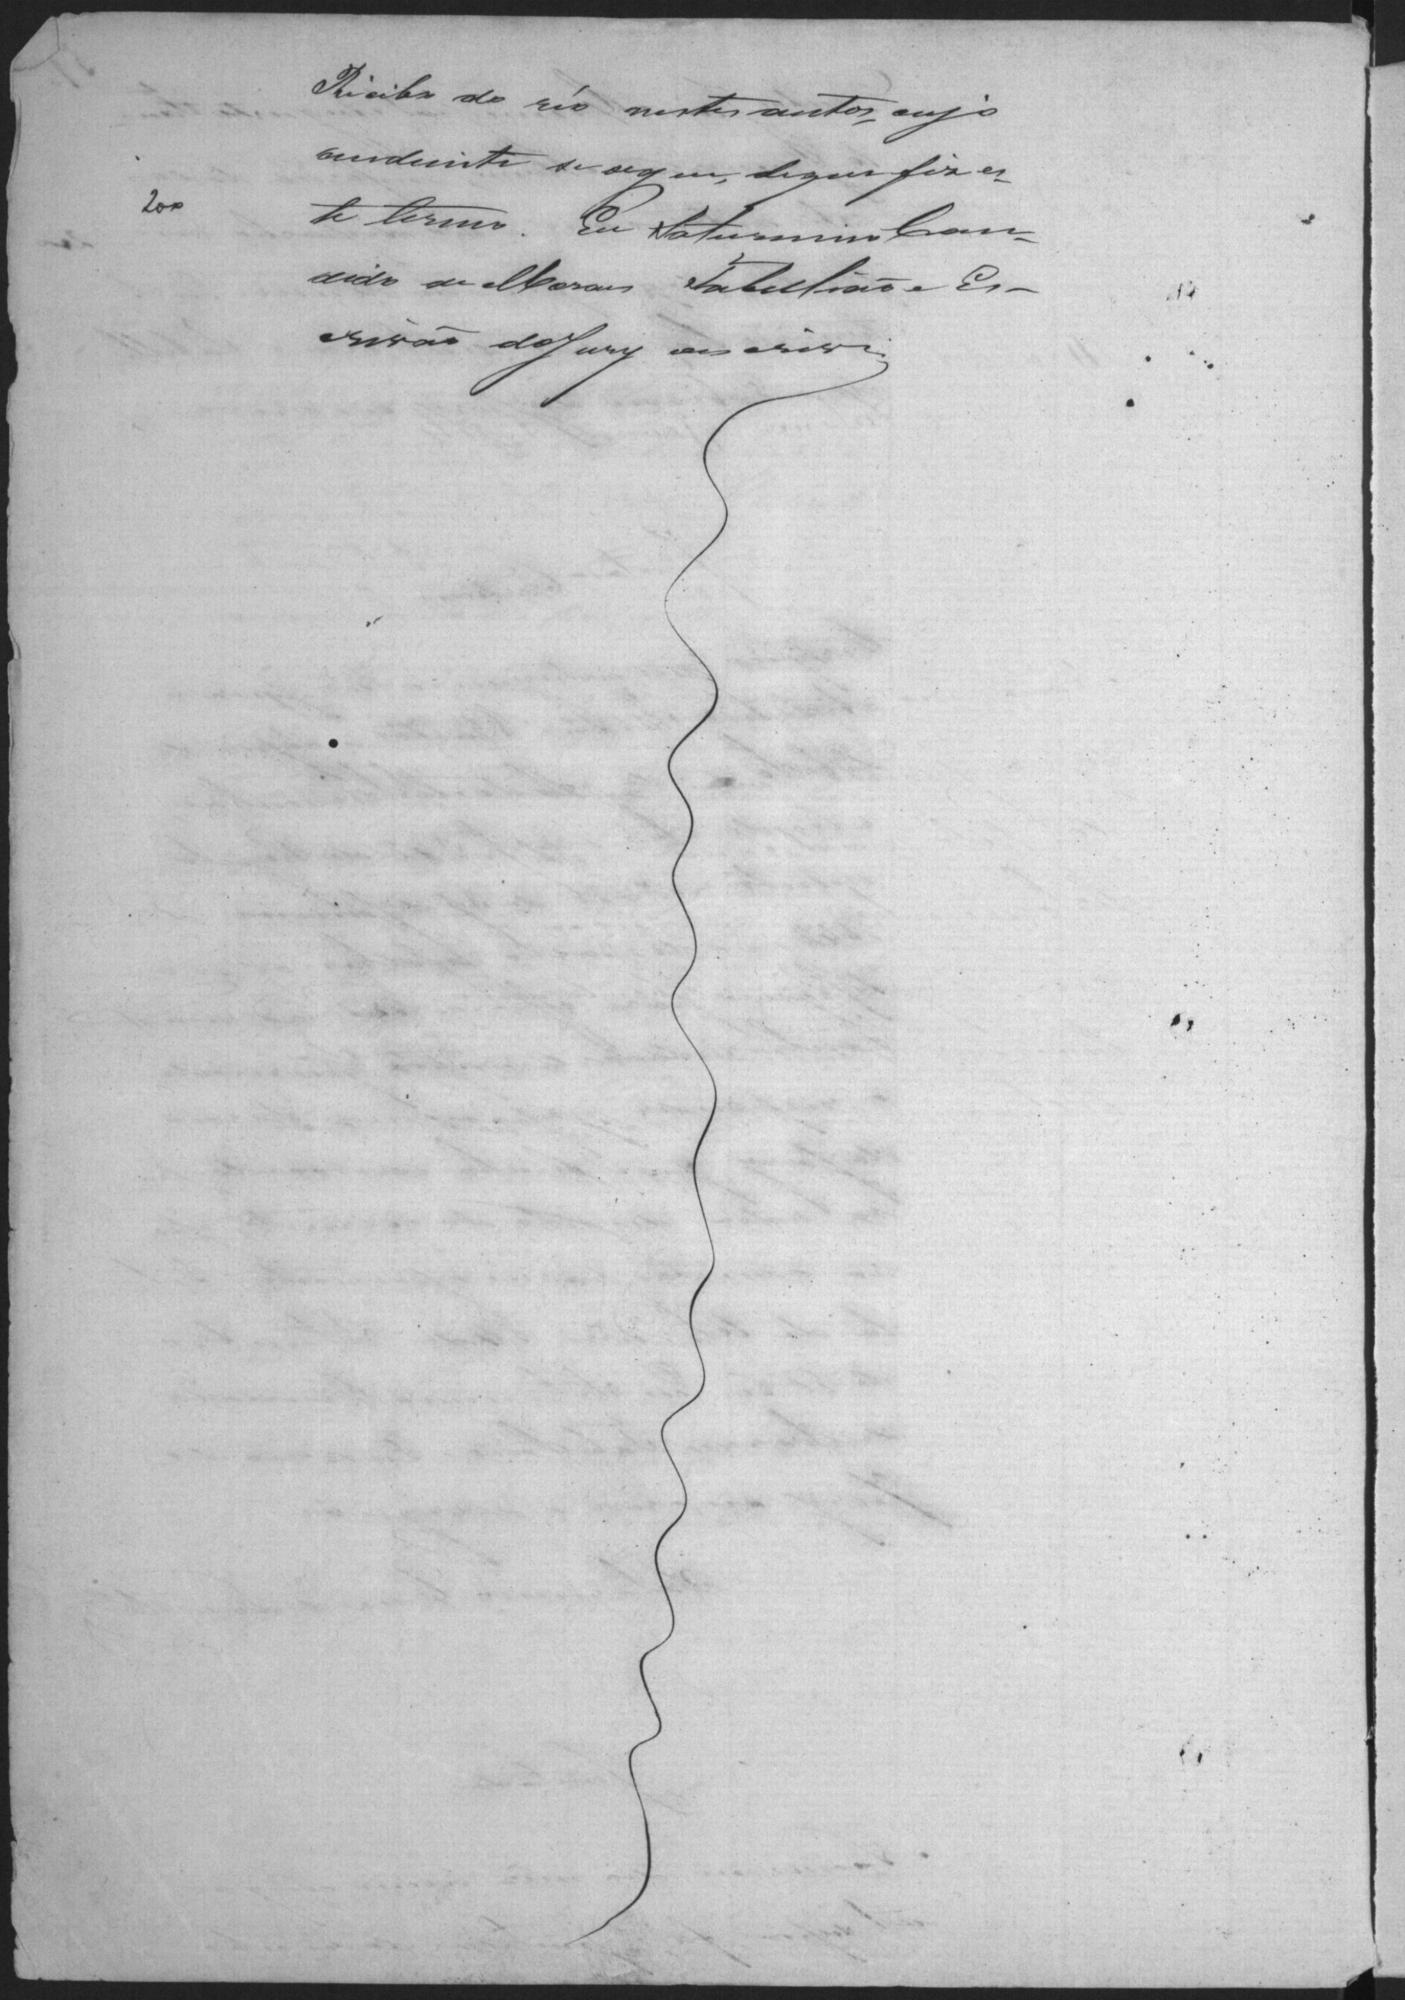 Recibo do réo nestes autos, cujo
se segue, de que fiz es-
200
te termo. Eu Saturnino Can-
dido de Moraes Tabellião e Es-
crivão do Jury o escrivi